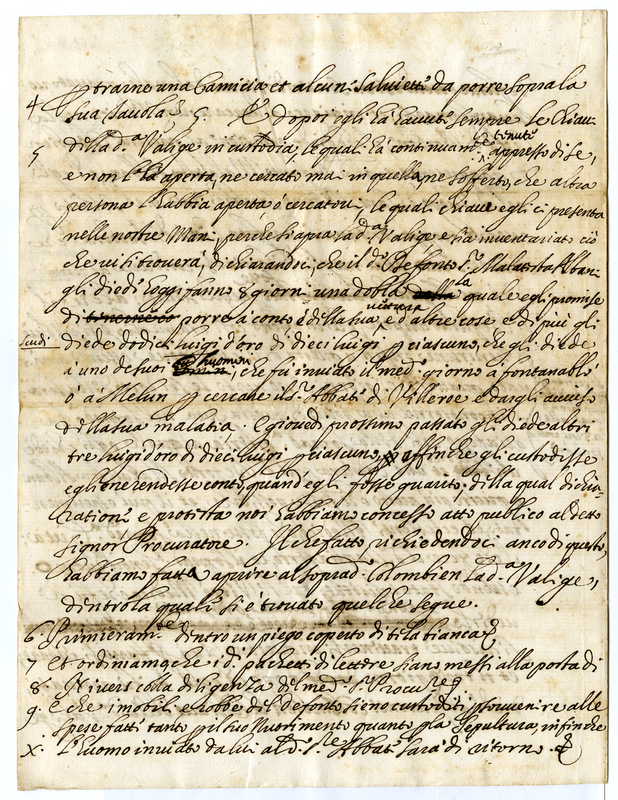 4 p trarne una Camicia et alcune Salviette da porre sopra la
sua Tavola &. 5. E dopoi egli ha havute sempre le chiavi
5 della d.a Valige in custodia, le quali ha continuam.te tenute appresso di se,
e non l'ha aperta, ne cercato mai in quella, ne sofferto, che altra
persona l'habbia aperta ò cercatovi, le quali chiave egli ci presenta
nelle nostre Mani, perche si apra la d.a Valige e sia inventariato ciò
che vi si troverà, dichiarandoci, che il d.o Defonto S.r Malatesta Alban-
gli diedi hoggi fanno 8 giorni una dobla la quale egli promise
di porre à conto è di sua vittura, ed altre cose e di più gli
scudi diede dodici luigi d'oro di dieci luigi p ciascuno, che gli diede
à uno de suoi huomini, che fù inviato il med.o giorno a fontanablò
ò à Melun p cercare il S.r Abbate di Villeroe e dargli avviso
della sua malatia. E giovedi prossimo passato gli diede altri
tre luigi d'oro di dieci luigi p ciascuno, affinche gli custodisse
egli one rendesse conto, quand'egli fosse guarito; della qual dichia-
ratione e protesta noi habbiamo concesso atto publico al detto
Signor Procuratore. Il che fatto richiedendoci anco di questo,
habbiamo fatta aprire al soprad.o Colombien la d.a Valige,
dentro la quale si è trovato quel che segue.
6 Primieram.te dentro un piego coperto di tela bianca &
7 et ordiniamo che i d.i pachetti di lettere siano messi alla posta di
8. colla diligenza del med.o S.r Procu.re &
9. E che i mobili e robbe del defonto sieno custoditi p sovvenire alle
spese fatte tanto p il suo Nutrimento quanto p la Sepultura, infinche
X. L'huomo inviato da lui al d.o S.re Abbate sarà di ritorno. &